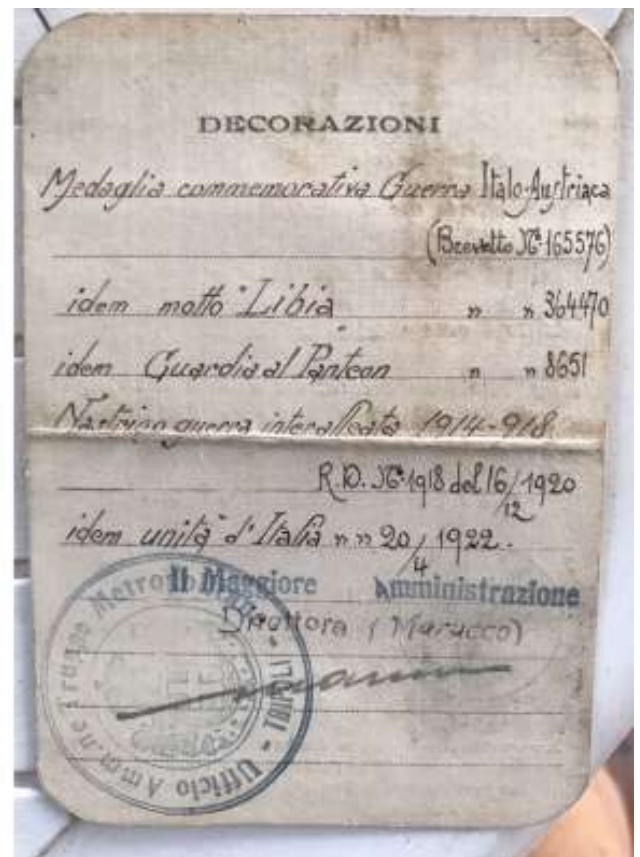 DECORAZIONI
Medaglia commemorativa Guerra Italo-Austriaca
(Brevetto Nº 165576)
idem motto "Libia " " 364470
idem Guardia al Panteon " " 8651
Nastrino guerra interalleata 1914-918
R.D. Nº 1918 del 16/12 1920
idem unità d'Italia " " 20/4 1922.
Il Maggiore Amministrazione
Direttore (Marucco)
Ufficio Amm.ne Truppe Metropo TRIPOLI